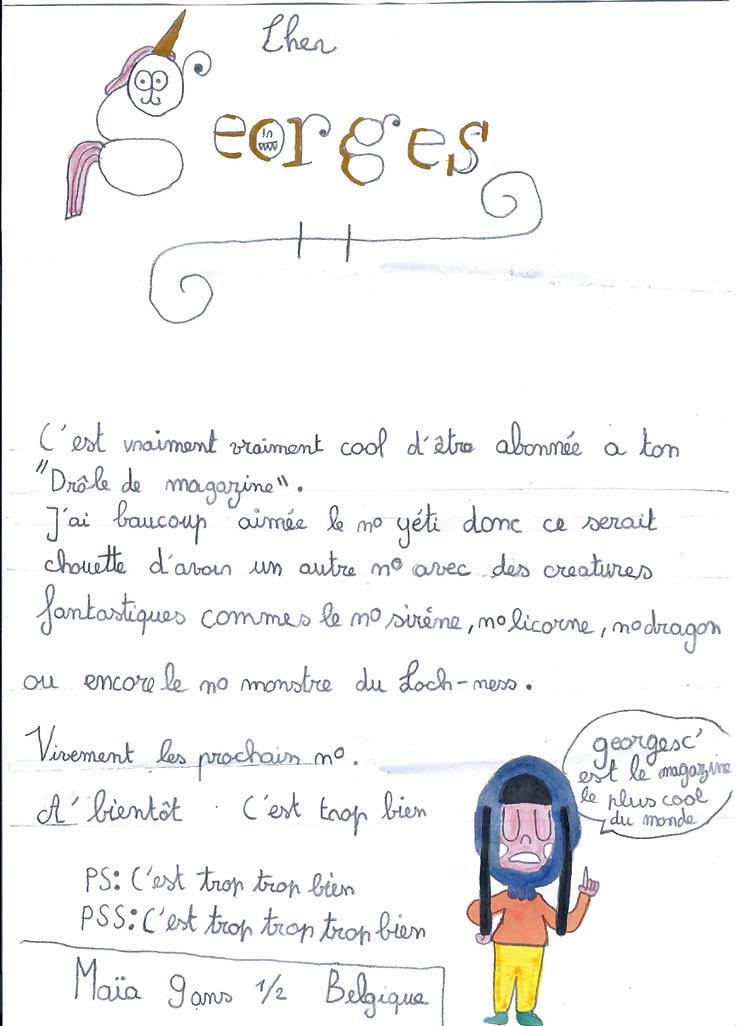 Cher
georges
C'est vraiment vraiment cool d'être abonnée a ton
"Drôle de magazine".
J'ai baucoup aimée le no yéti donc ce serait
chouette d'avoir un autre no avec des creatures
fantastiques commes le no sirène, no licorne, no dragon
ou encore le no monstre du Loch-ness.
Vivement les prochain no.
A' bientôt. C'est trop bien
georges c'
est le magazine
le plus cool
du monde
PS: C'est trop trop bien
PSS: C'est trop trop trop bien
Maïa 9 ans 1/2 Belgique